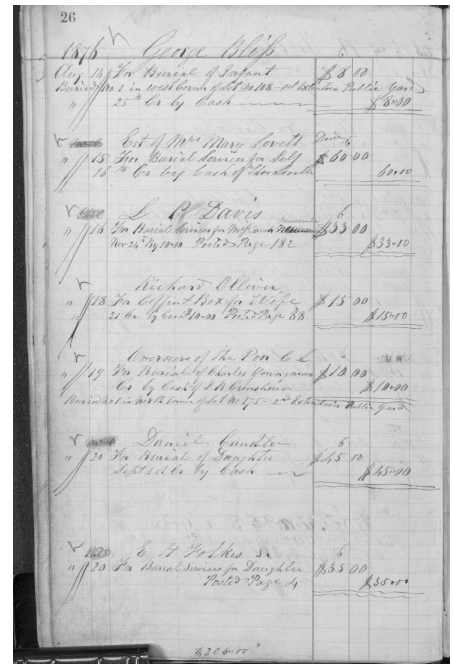 26
1876 George Bliss
Aug 14 For Burial of Infant $8 00
Buried No 1 in west corner of lot No 108 - 1st Extention Public Yard
" 25th Cr by Cash $8.00
Est of Mrs Mary Lovett
" 15 For Burial Services for Self $60 00
26th Cr by Cash of Thos 60.00
L P Davis 6
" 16 For Burial Services for $33 00
Nov 24th By 10.00 Posted Page 182 $33.00
Richard Olliver
" 18 For Coffin & Box for Wife $15 00
21 Cr by Cash 10.00 Posted Page 88 $15.00
Overseers of the Poor C L 6
" 19 For Burial of Charles Youngman $10 00
Cr by Cash of $10.00
Buried No 1 in north corner of lot No 175 - 2nd Extention Public Yard
Daniel Candler 6
" 20 For Burial of Daughter $45 00
Sept 1st Cr by Cash $45.00
E H Folkes Sr 6
" 20 For Burial Services for Daughter $35 00
Posted Page 4 $35.00
$206.00